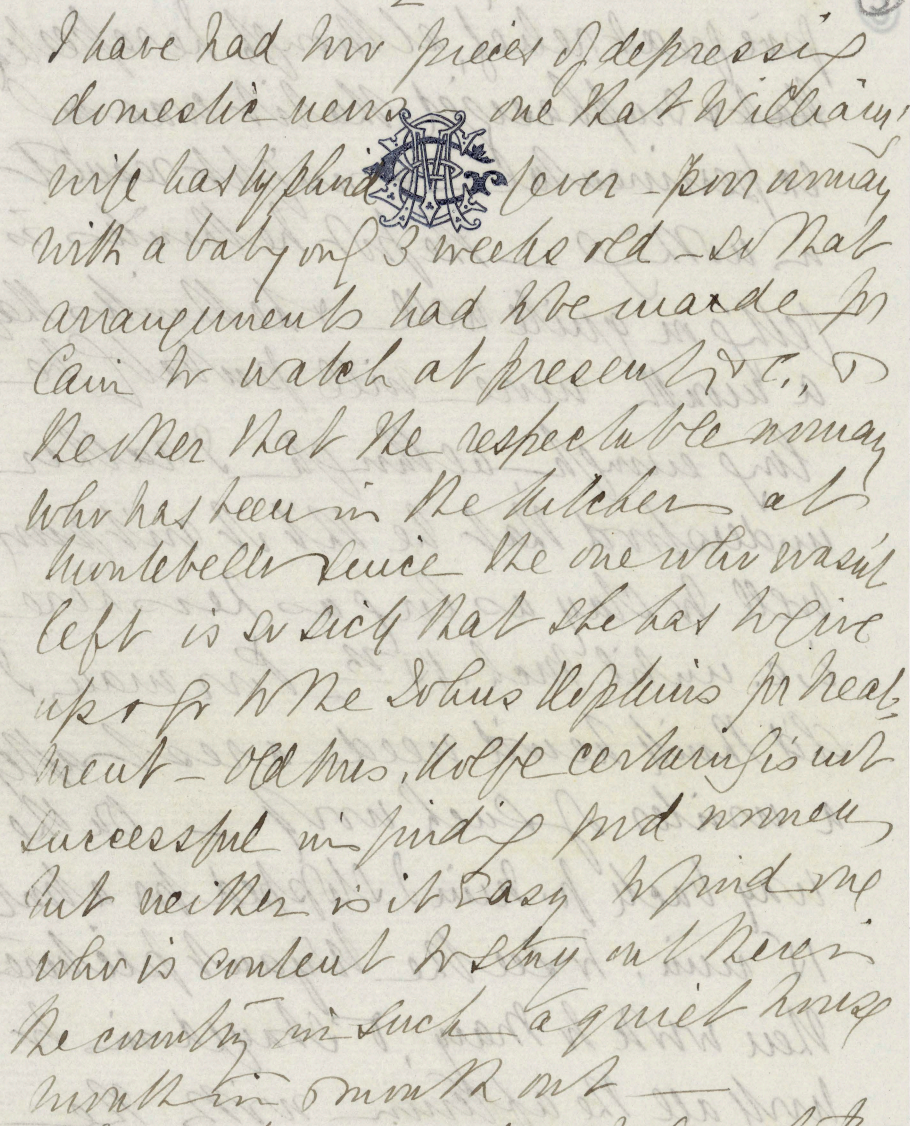 I have had two pieces of depressing
domestic news one that William's
wife has typhoid fever - poor woman
with a baby only 3 weeks old - so that
arrangements had to be made for
Cain to watch at present, &c., &
the other that the respectable woman
who has been in the kitchen at
Montebello since the one who wasn't
left is so sick that she has to give
up & go to the Johns Hopkins for treat-
ment - Old Mrs. Kolfe certainly is not
successful in finding good women,
but neither is it easy to find one
who is content to stay out there in
the country in such a quiet house
month in & month out —